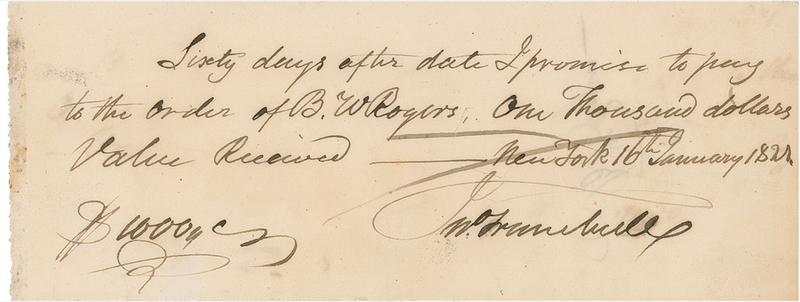 Sixty days after date I promise to pay
to the order of B. W Rogers, One Thousand dollars
Value Received — New York 16th January 182
$ 1000
Jno. Trumbull